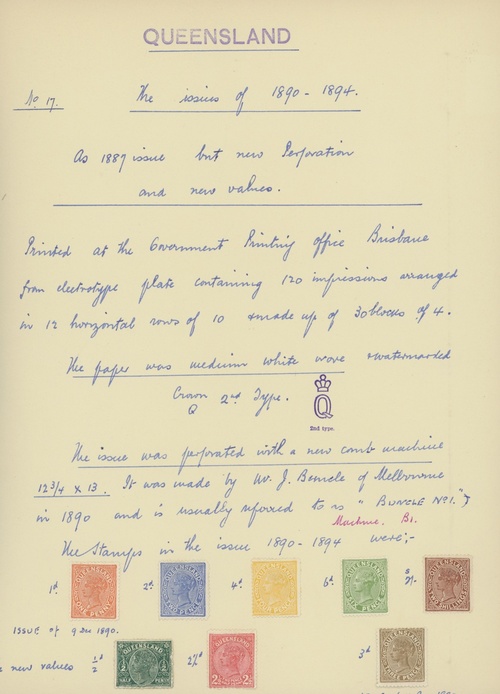 QUEENSLAND
No 17. The issues of 1890 - 1894.
As 1887 issue but new Perforation
and new values.
Printed at the Government Printing office Brisbane
from electrotype plate containing 120 impressions arranged
in 12 horizontal rows of 10 & made up of 30 blocks of 4.
The paper was medium white wove & watermarked
Crown 2nd Type.
Q
Q
2nd type.
The issue was perforated with a new comb machine
12 3/4 x 13. It was made by Mr. J. Buncle of Melbourne
in 1890 and is usually referred to as "BUNCLE No 1."
Machine. B1.
The Stamps in the issue 1890-1894 were;-
1d 2d 4d 6d 2/-.
QUEENSLAND QUEENSLAND QUEENSLAND QUEENSLAND QUEENSLAND
ONE PENNY TWO PENCE FOUR PENCE SIX PENCE TWO SHILLINGS
ISSUE OF 9 DEC 1890.
new values 1/2d 2 1/2d 3d
QUEENSLAND QUEENSLAND QUEENSLAND
HALF PENNY